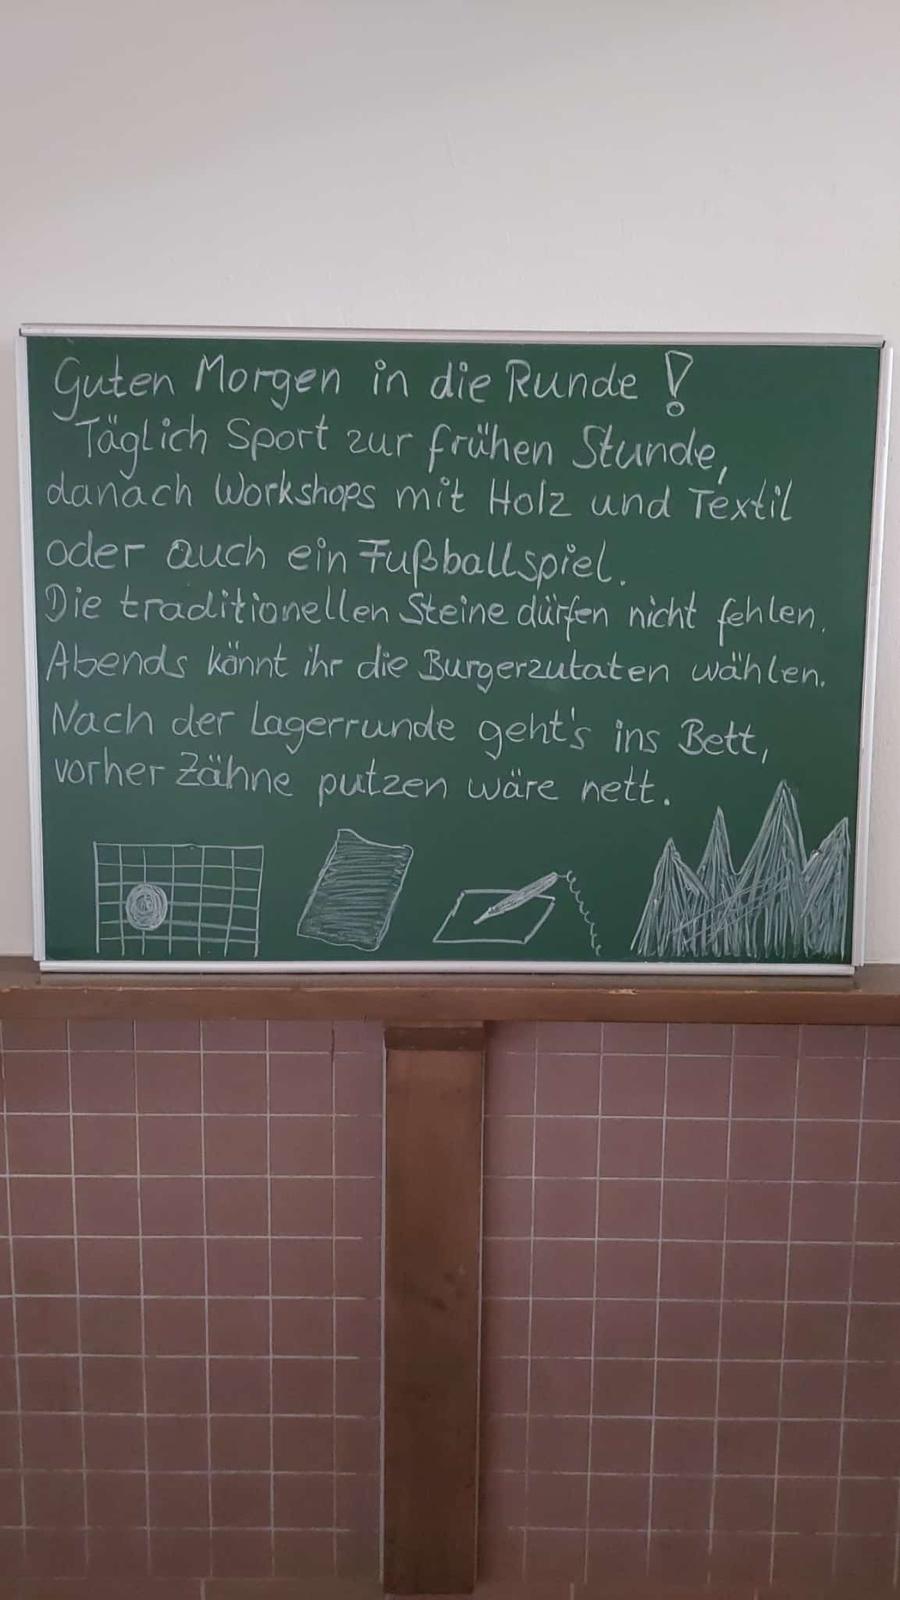 Guten Morgen in die Runde!
Täglich Sport zur frühen Stunde,
danach Workshops mit Holz und Textil
oder auch ein Fußballspiel.
Die traditionellen Steine dürfen nicht fehlen.
Abends könnt ihr die Burgerzutaten wählen.
Nach der Lagerrunde geht's ins Bett,
vorher Zähne putzen wäre nett.